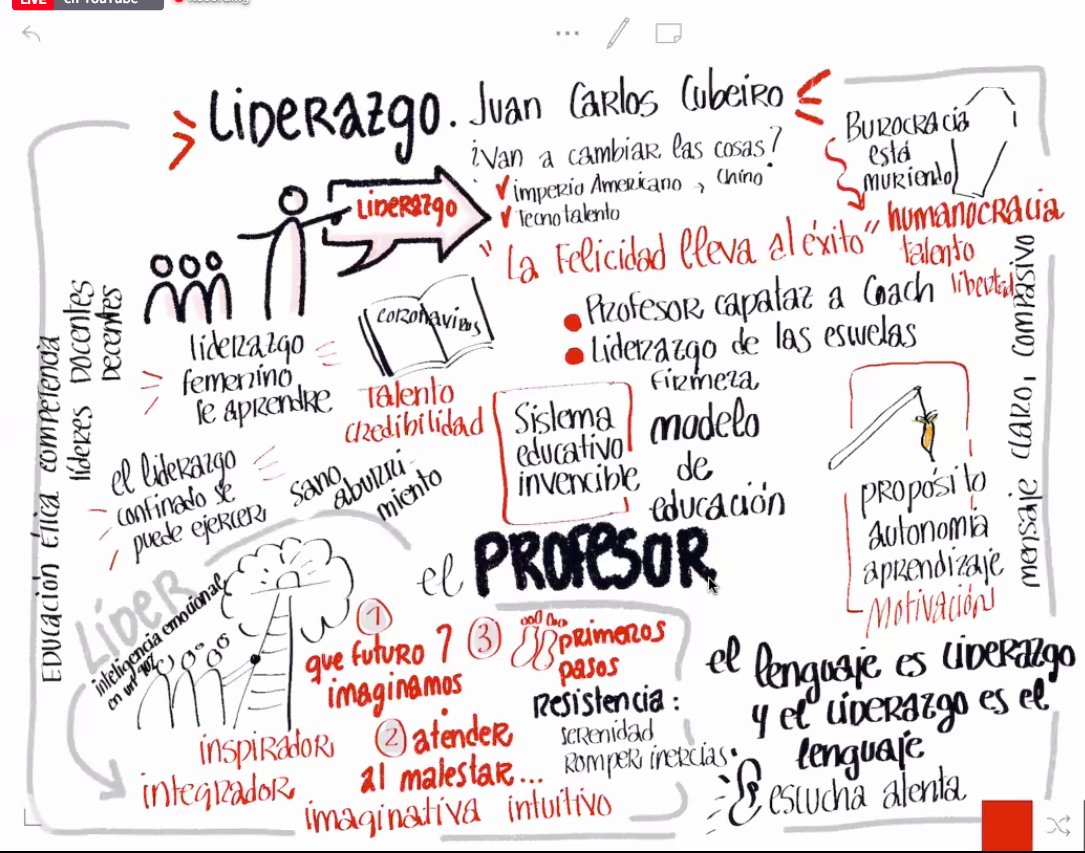 LIVE en YouTube
Recording
LIDERAZGO. JUAN CARLOS CUBEIRO
¿VAN A CAMBIAR las cosas?
IMPERIO AMERICANO → Chino
TecnoTalento
"La Felicidad lleva al éxito"
BUROCRACIA
está
MURIENDO
humanocracia
Talento
libertad
LIDERAZGO
PROFESOR CAPATAZ a COACH
LIDERAZGO de las escuelas
FIRMEZA
modelo
de
educación
CORONAVIRUS
Talento
CREDIbilidad
lideRazgo
femenino
se APRENDRE
Sistema
educativo
invencible
el lideRazgo
confinado se
puede ejercer
sano
aburri-
miento
PROPÓSITO
autonomía
aprendizaje
Motivación
EDUCACIÓN Ética competencia
líderes DOCENTES
DECENTES
mensaje CLARO, COMPASIVO
el PROFESOR
LÍDER
inteligencia emocional
inspiRadoR
integRadoR
1
que futuro ?
imaginamos
2 atender
al malestar...
imaginativa intuitivo
3 primeros
pasos
Resistencia:
serenidad
Romper inercias.
el lenguaje es LIDERAZGO
y el LIDERAZGO es el
lenguaje
escucha atenta